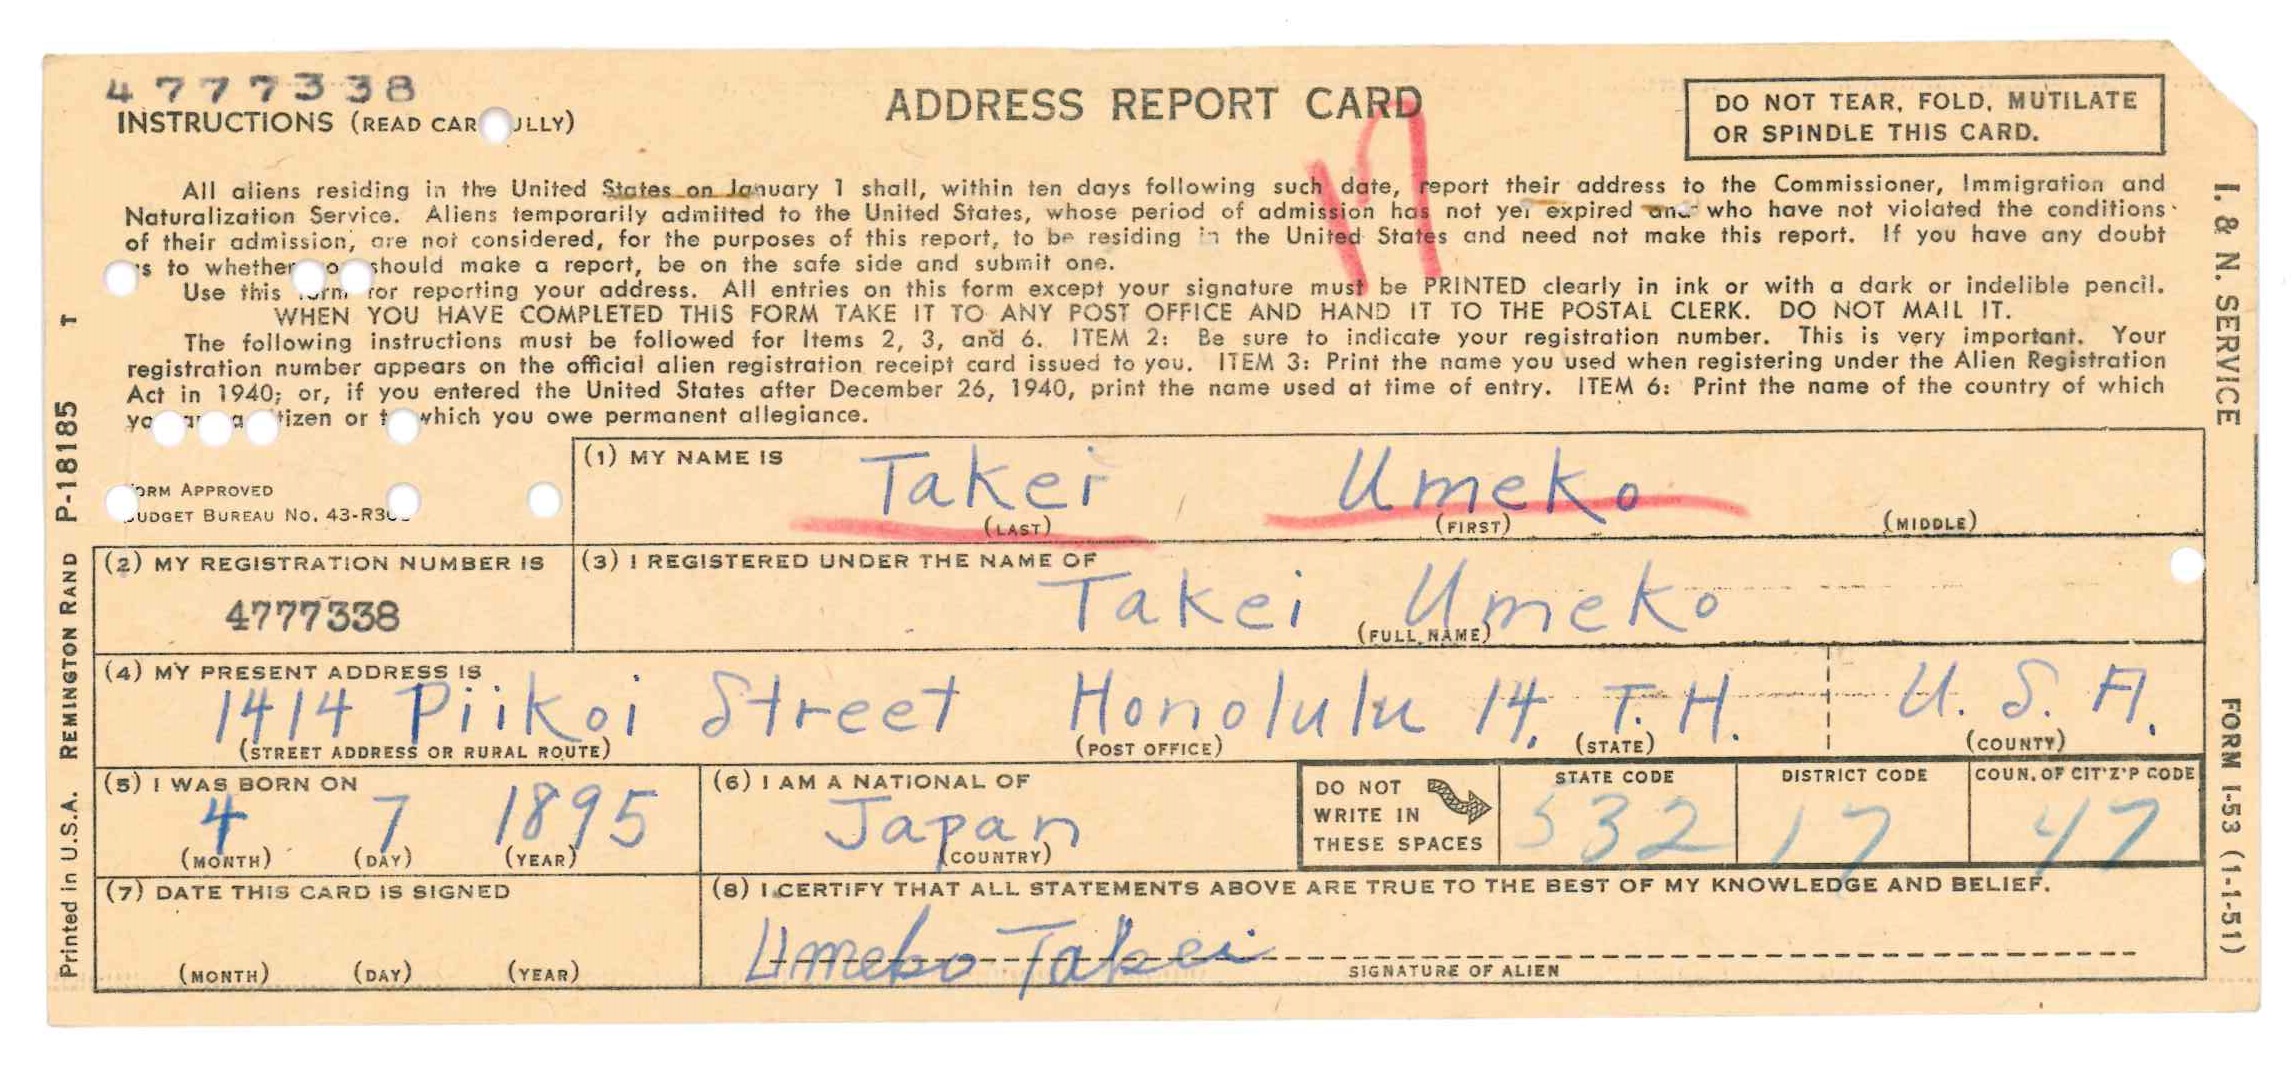 4777338
ADDRESS REPORT CARD
DO NOT TEAR, FOLD, MUTILATE
OR SPINDLE THIS CARD.
INSTRUCTIONS (READ CAR ULLY)
17
All aliens residing in the United States on January 1 shall, within ten days following such date, report their address to the Commissioner, Immigration and
Naturalization Service. Aliens temporarily admitted to the United States, whose period of admission has not yet expired and who have not violated the conditions
of their admission, are not considered, for the purposes of this report, to be residing in the United States and need not make this report. If you have any doubt
as to whether you should make a report, be on the safe side and submit one.
Use this form for reporting your address. All entries on this form except your signature must be PRINTED clearly in ink or with a dark or indelible pencil.
WHEN YOU HAVE COMPLETED THIS FORM TAKE IT TO ANY POST OFFICE AND HAND IT TO THE POSTAL CLERK. DO NOT MAIL IT.
The following instructions must be followed for Items 2, 3, and 6. ITEM 2: Be sure to indicate your registration number. This is very important. Your
registration number appears on the official alien registration receipt card issued to you. ITEM 3: Print the name you used when registering under the Alien Registration
Act in 1940; or, if you entered the United States after December 26, 1940, print the name used at time of entry. ITEM 6: Print the name of the country of which
you are a citizen or to which you owe permanent allegiance.
FORM APPROVED
BUDGET BUREAU No. 43-R3
(1) MY NAME IS
Takei Umeko
(LAST) (FIRST) (MIDDLE)
(2) MY REGISTRATION NUMBER IS
4777338
(3) I REGISTERED UNDER THE NAME OF
Takei Umeko
(FULL NAME)
(4) MY PRESENT ADDRESS IS
1414 Piikoi Street Honolulu 14, T.H. U.S.A.
(STREET ADDRESS OR RURAL ROUTE) (POST OFFICE) (STATE) (COUNTY)
(5) I WAS BORN ON
4 7 1895
(MONTH) (DAY) (YEAR)
(6) I AM A NATIONAL OF
Japan
(COUNTRY)
DO NOT
WRITE IN
THESE SPACES
STATE CODE
532
DISTRICT CODE
17
COUN. OF CIT'Z'P CODE
47
(7) DATE THIS CARD IS SIGNED
(MONTH) (DAY) (YEAR)
(8) I CERTIFY THAT ALL STATEMENTS ABOVE ARE TRUE TO THE BEST OF MY KNOWLEDGE AND BELIEF.
Umeko Takei
SIGNATURE OF ALIEN
Printed in U.S.A. REMINGTON RAND P-18185 T
I. & N. SERVICE
FORM I-53 (1-1-51)